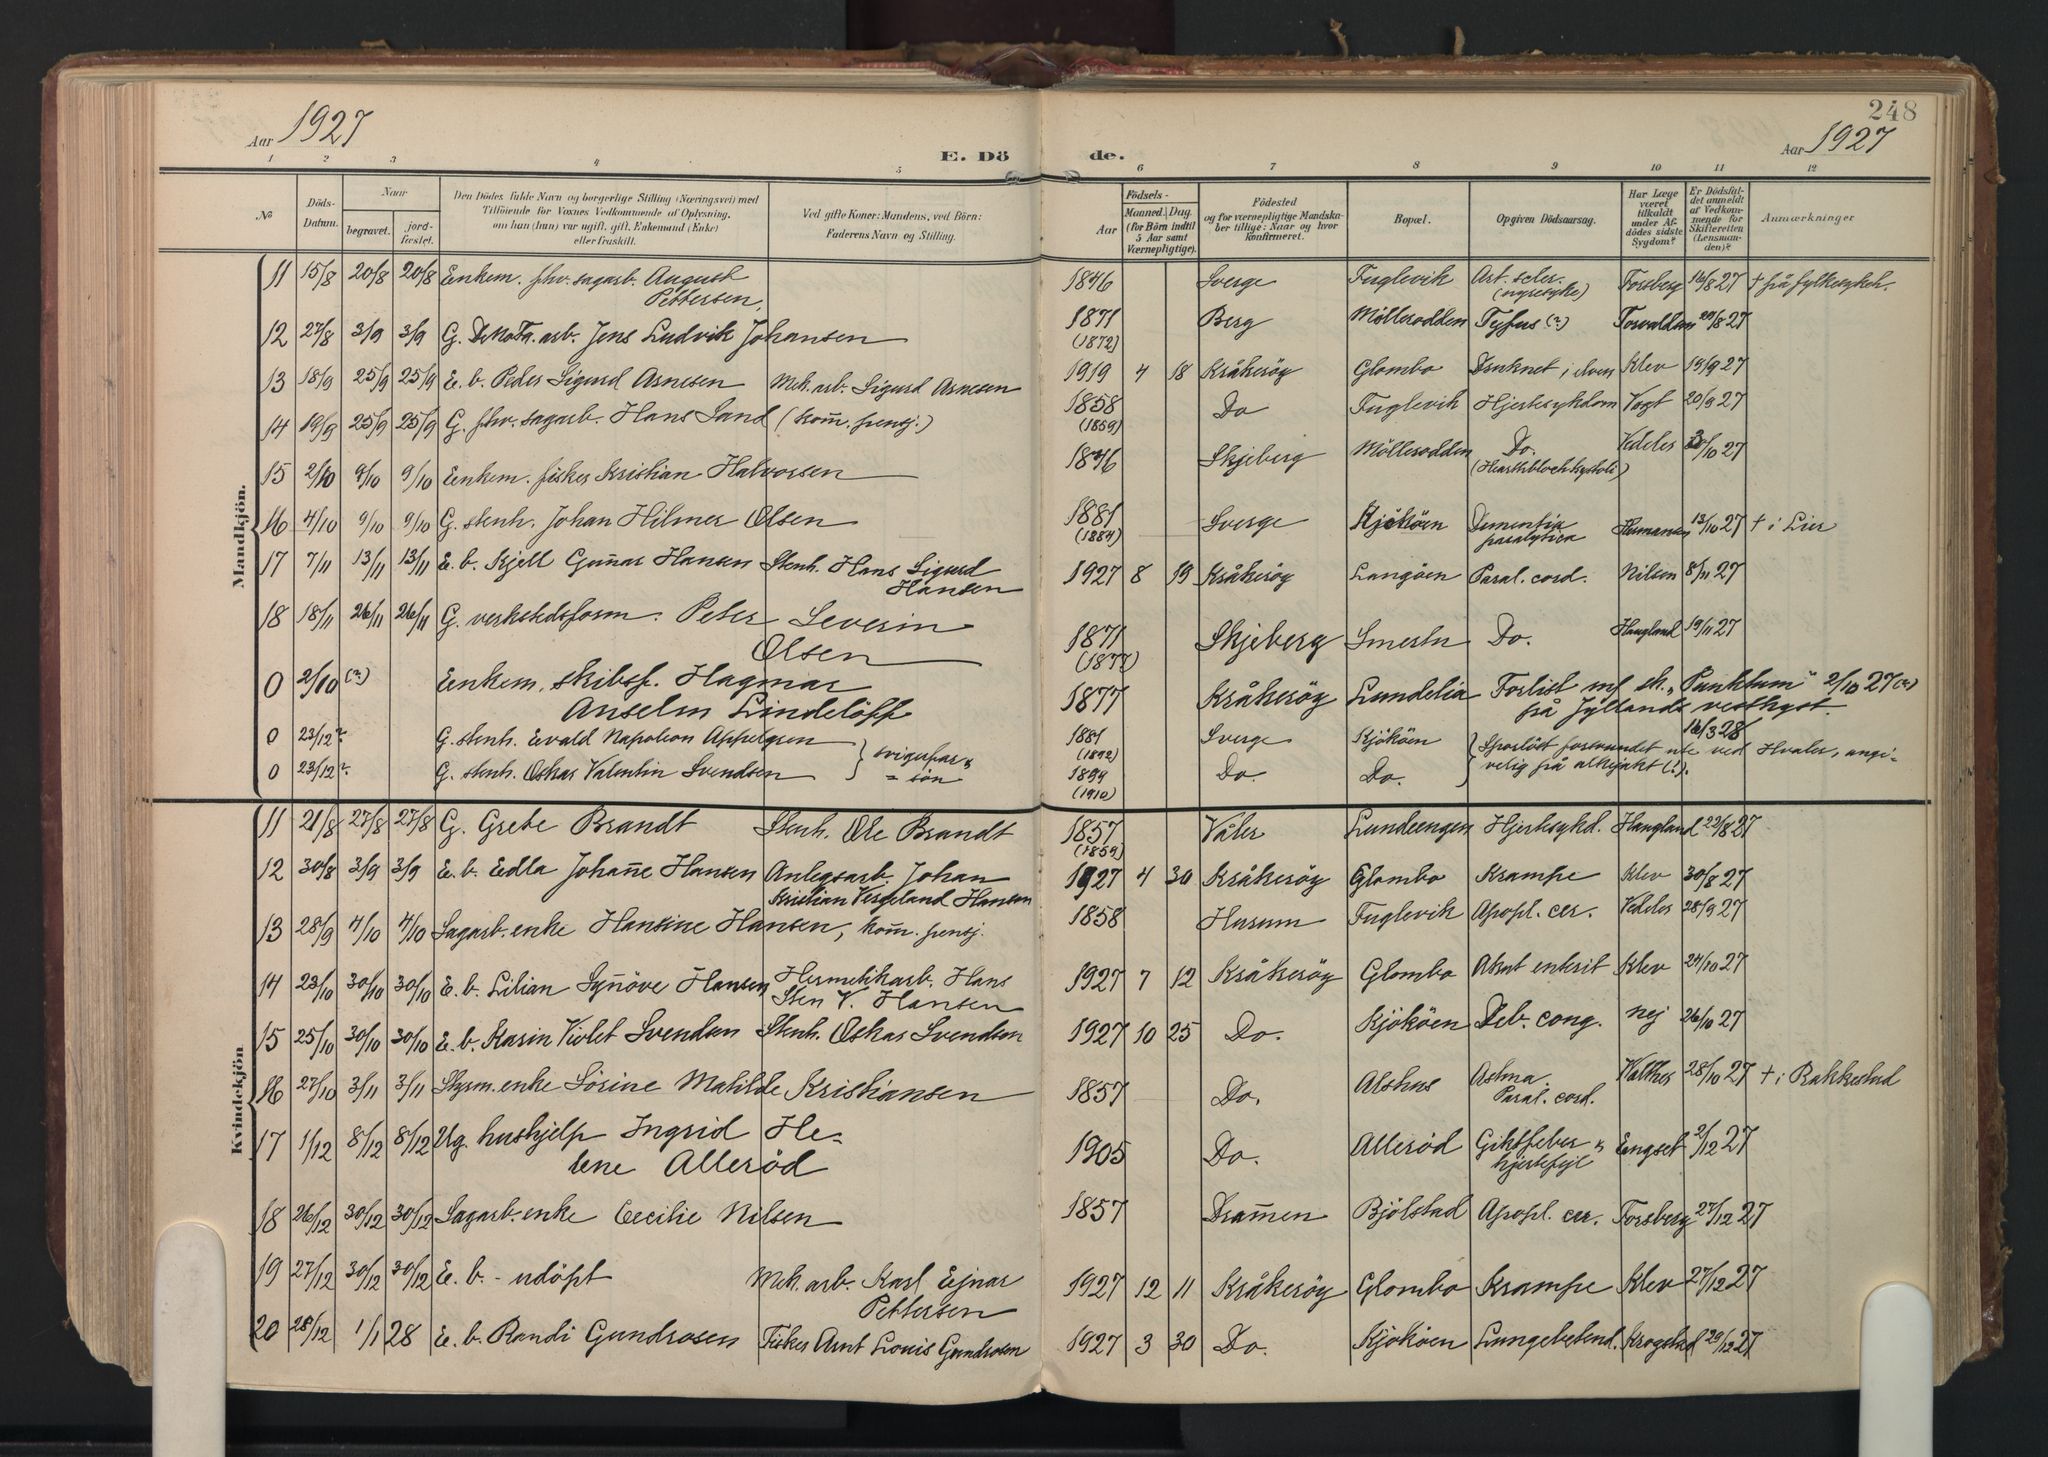 248
Aar 1927 E. Dö de. Aar 1927
1 2 3 4 5 6 7 8 9 10 11 12
No
Döds-Datum.
Naar
begravet. jordfæstet.
Den Dödes fulde Navn og borgerlige Stilling (Næringsvei) med
Tilföiende for Voxnes Vedkommende af Oplysning,
om han (hun) var ugift, gift, Enkemand (Enke)
eller fraskilt.
Ved gifte Koner: Mandens, ved Börn:
Faderens Navn og Stilling.
Födsels-
Aar
Maaned. Dag.
(for Börn indtil
5 Aar samt
Værnepligtige).
Födested
og for værnepligtige Mandskaber tillige: Naar og hvor
konfirmeret.
Bopæl.
Opgiven Dödsaarsag.
Har Læge
været
tilkaldt
under Afdödes sidste
Sygdom?
Er Dödsfaldet anmeldt
af Vedkommende for
Skifteretten
(Lensmanden)?
Anmærkninger
Mandkjön.
11 15/8 20/8 20/8 Enkem. fhv. sagarb. August Pettersen 1846 Sverge Fuglevik Art. scler. (nyresyke) Forsberg 16/8 27 † på fylkessykeh.
12 27/8 3/9 3/9 G. arb. Jens Ludvik Johansen 1871 (1872) Berg Möllerodden Tyfus (?) 27
13 18/9 25/9 25/9 E. b. Peder Sigurd Arnesen Mek. arb. Sigurd Arnesen 1919 4 18 Kråkeröy Glombo Druknet i elven Klev 19/9 27
14 19/9 25/9 25/9 G. fhv. sagarb. Hans Sand (kom̅. pensj.) 1858 (1859) Do Fuglevik Hjertesykdom Vogt 20/9 27
15 2/10 9/10 9/10 Enkem. fisker Kristian Halvorsen 1846 Skjeberg Möllerodden Do. Vedeler 3/10 27
16 4/10 9/10 9/10 G. stenh. Johan Hilmer Olsen 1881 (1884) Sverge Kjököen Dementia paralytica 13/10 27 † i Lier
17 7/11 13/11 13/11 E. b. Kjell Gun̅ar Hansen Stenh. Hans Sigurd Hansen 1927 8 19 Kråkeröy Langöen Paral. cord. Nilsen 8/11 27
18 18/11 26/11 26/11 G. verkstedsform. Peter Severin Olsen 1871 (1877) Skjeberg Smertu Do. Haugland 19/11 27
0 2/10 (?) Enkem. skibsf. Hagmar Anselm Lindelöff 1877 Kråkeröy Lundelia Forlist m/ sk. „Punktum" 2/10 27 (?) på Jyllands vestkyst.
0 23/12 ? G. stenh. Evald Napoleon Appelgren } svigerfar & 1881 (1892) Sverge Kjököen } Sporlöst forsvundet ute ved Hvaler, angi-
16/3 28
0 23/12 ? G. stenh. Oskar Valentin Svendsen } = sön 1899 (1910) Do. Do. } velig på alkejakt (!).
Kvindekjön
11 21/8 27/8 27/8 G. Grete Brandt Stenh. Ole Brandt 1857 (1859) Våler Lundeengen Hjertesykd. Haugland 22/8 27
12 30/8 3/9 3/9 E. b. Edla Johan̅e Hansen Anlegsarb. Johan Kristian Vergeland Hansen 1927 4 30 Kråkeröy Glombo Krampe Klev 30/8 27
13 28/9 4/10 4/10 Sagarb. enke Hansine Hansen, kom̅. pensj. 1858 Hurum Fuglevik Apopl. cer. Vedeler 28/9 27
14 23/10 30/10 30/10 E. b. Lilian Syn̅öve Hansen Hermetikarb. Hans Sten V. Hansen 1927 7 12 Kråkeröy Glombo Akut enterit Klev 24/10 27
15 25/10 30/10 30/10 E. b. Karin Violet Svendsen Stenh. Oskar Svendsen 1927 10 25 Do. Kjököen Deb. cong. nej 26/10 27
16 27/10 3/11 3/11 Styrm. enke Sörine Matilde Kristiansen 1857 Do. Alshus Astma. Paral. cord. Walther 28/10 27 † i Rakkestad
17 1/12 8/12 8/12 Ug. hushjelp Ingrid Helene Alleröd 1905 Do. Alleröd Giktfeber & hjertefejl Engset 2/12 27
18 26/12 30/12 30/12 Sagarb. enke Cecilie Nilsen 1857 Dram̅en Bjölstad Apopl. cer. Forsberg 27/12 27
19 27/12 30/12 30/12 E. b. - udöpt Mek. arb. Karl Ejnar Pettersen 1927 12 11 Kråkeröy Glombo Krampe Klev 27/12 27
20 28/12 1/1 28 E. b. Randi Gundrosen Fisker Arnt Louis Gundrosen 1927 3 30 Do. Kjököen Lungebetend. Krogstad 29/12 27